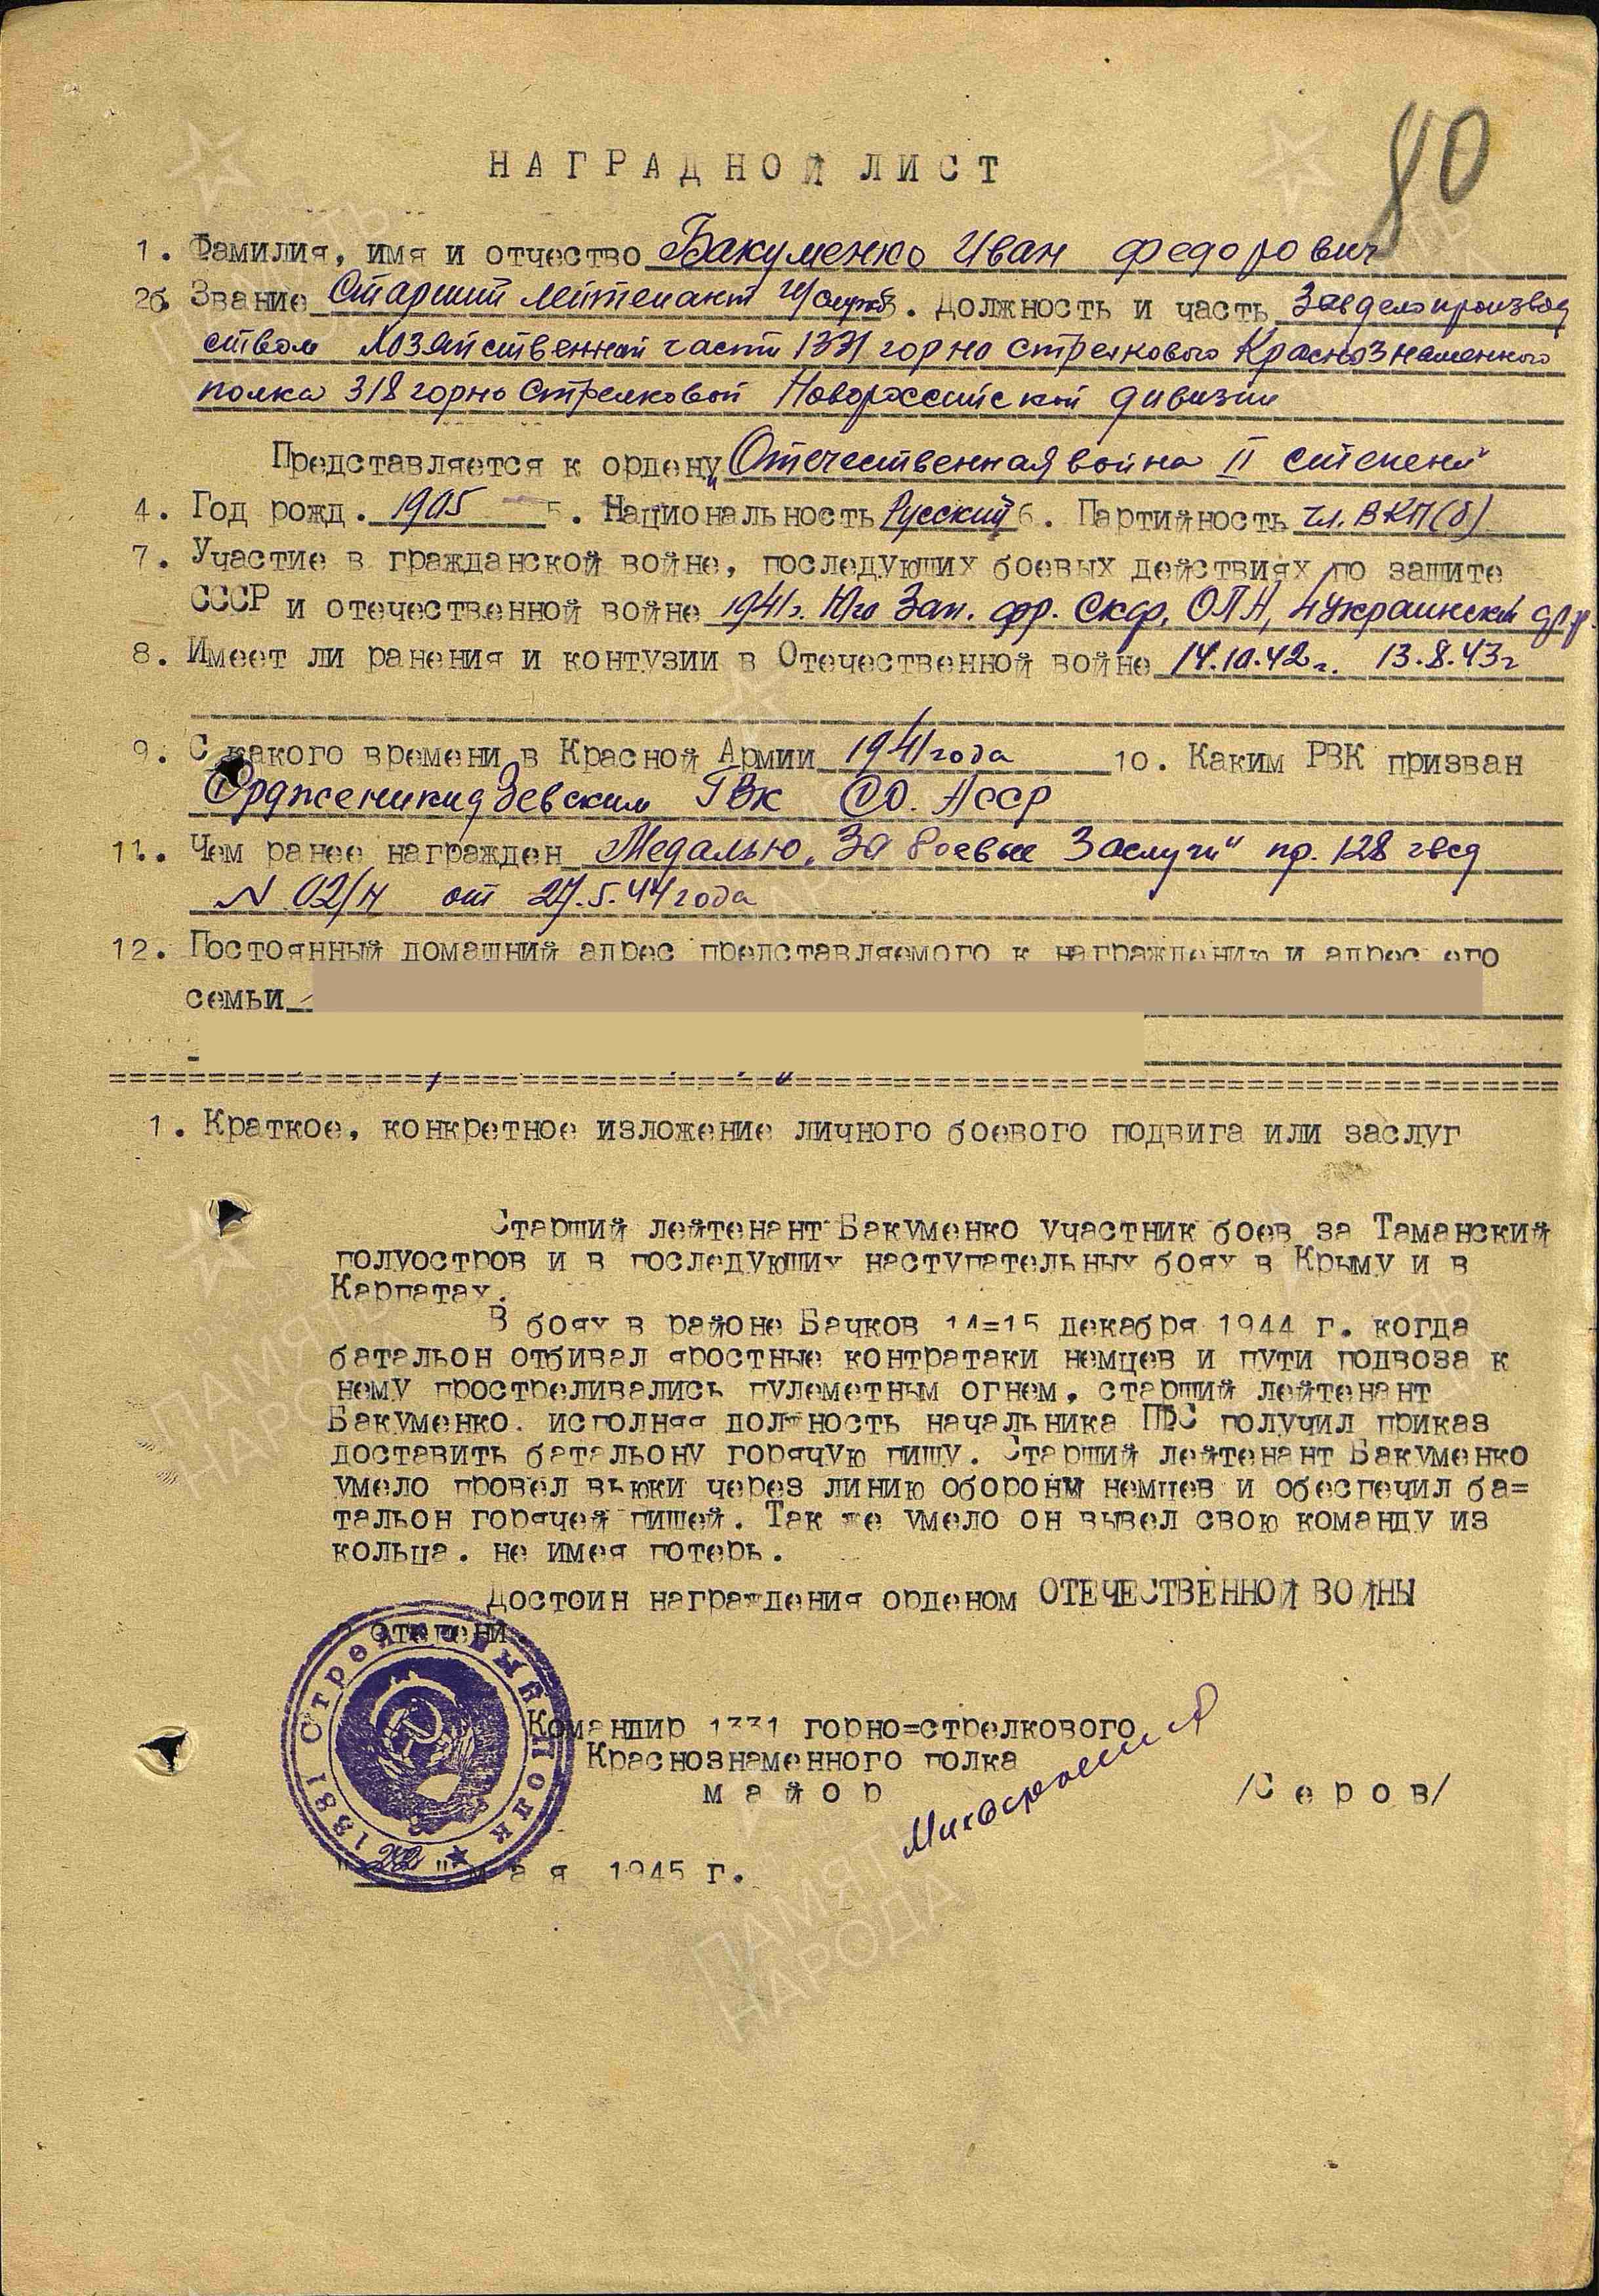 80
НАГРАДНОЙ ЛИСТ
1. Фамилия, имя и отчество Бакуменко Иван Федорович
2б Звание Старший лейтенант и/служб 3. Должность и часть Завделопроизвод
ством хозяйственной части 1331 горно стрелкового Краснознаменного
полка 318 горно стрелковой Новороссийской дивизии
Представляется к ордену „Отечественная война II степени"
4. Год рожд. 1905 5. Национальность Русский 6. Партийность чл. ВКП(б)
7. Участие в гражданской войне, последующих боевых действиях по защите
СССР и отечественной войне 1941г. Юго Зап. фр. Скф, ОПА, 4 Украинский фр.
8. Имеет ли ранения и контузии в Отечественной войне 14.10.42г. 13.8.43г
9. С какого времени в Красной Армии 1941 года 10. Каким РВК призван
Орджоникидзевским ГВК СО. АССР
11. Чем ранее награжден Медалью „За боевые заслуги" пр. 128 гвсд
N 02/н от 27.5.44 года
12. Постоянный домашний адрес представляемого к награждению и адрес его
семьи
1. Краткое, конкретное изложение личного боевого подвига или заслуг
Старший лейтенант Бакуменко участник боев за Таманский
полуостров и в последующих наступательных боях в Крыму и в
Карпатах.
В боях в районе Бачков 14=15 декабря 1944 г. когда
батальон отбивал яростные контратаки немцев и пути подвоза к
нему простреливались пулеметным огнем, старший лейтенант
Бакуменко. исполняя должность начальника ПФС получил приказ
доставить батальону горячую пищу. Старший лейтенант Бакуменко
умело провел вьюки через линию обороны немцев и обеспечил ба=
тальон горячей пищей. Так же умело он вывел свою команду из
кольца. не имея потерь.
Достоин награждения орденом ОТЕЧЕСТВЕННОЙ ВОЙНЫ
2 степени.
Командир 1331 горно=стрелкового
Краснознаменного полка
майор /Серов/
1331 Стрелковый Полк
"22" мая 1945 г.
ПАМЯТЬ
НАРОДА